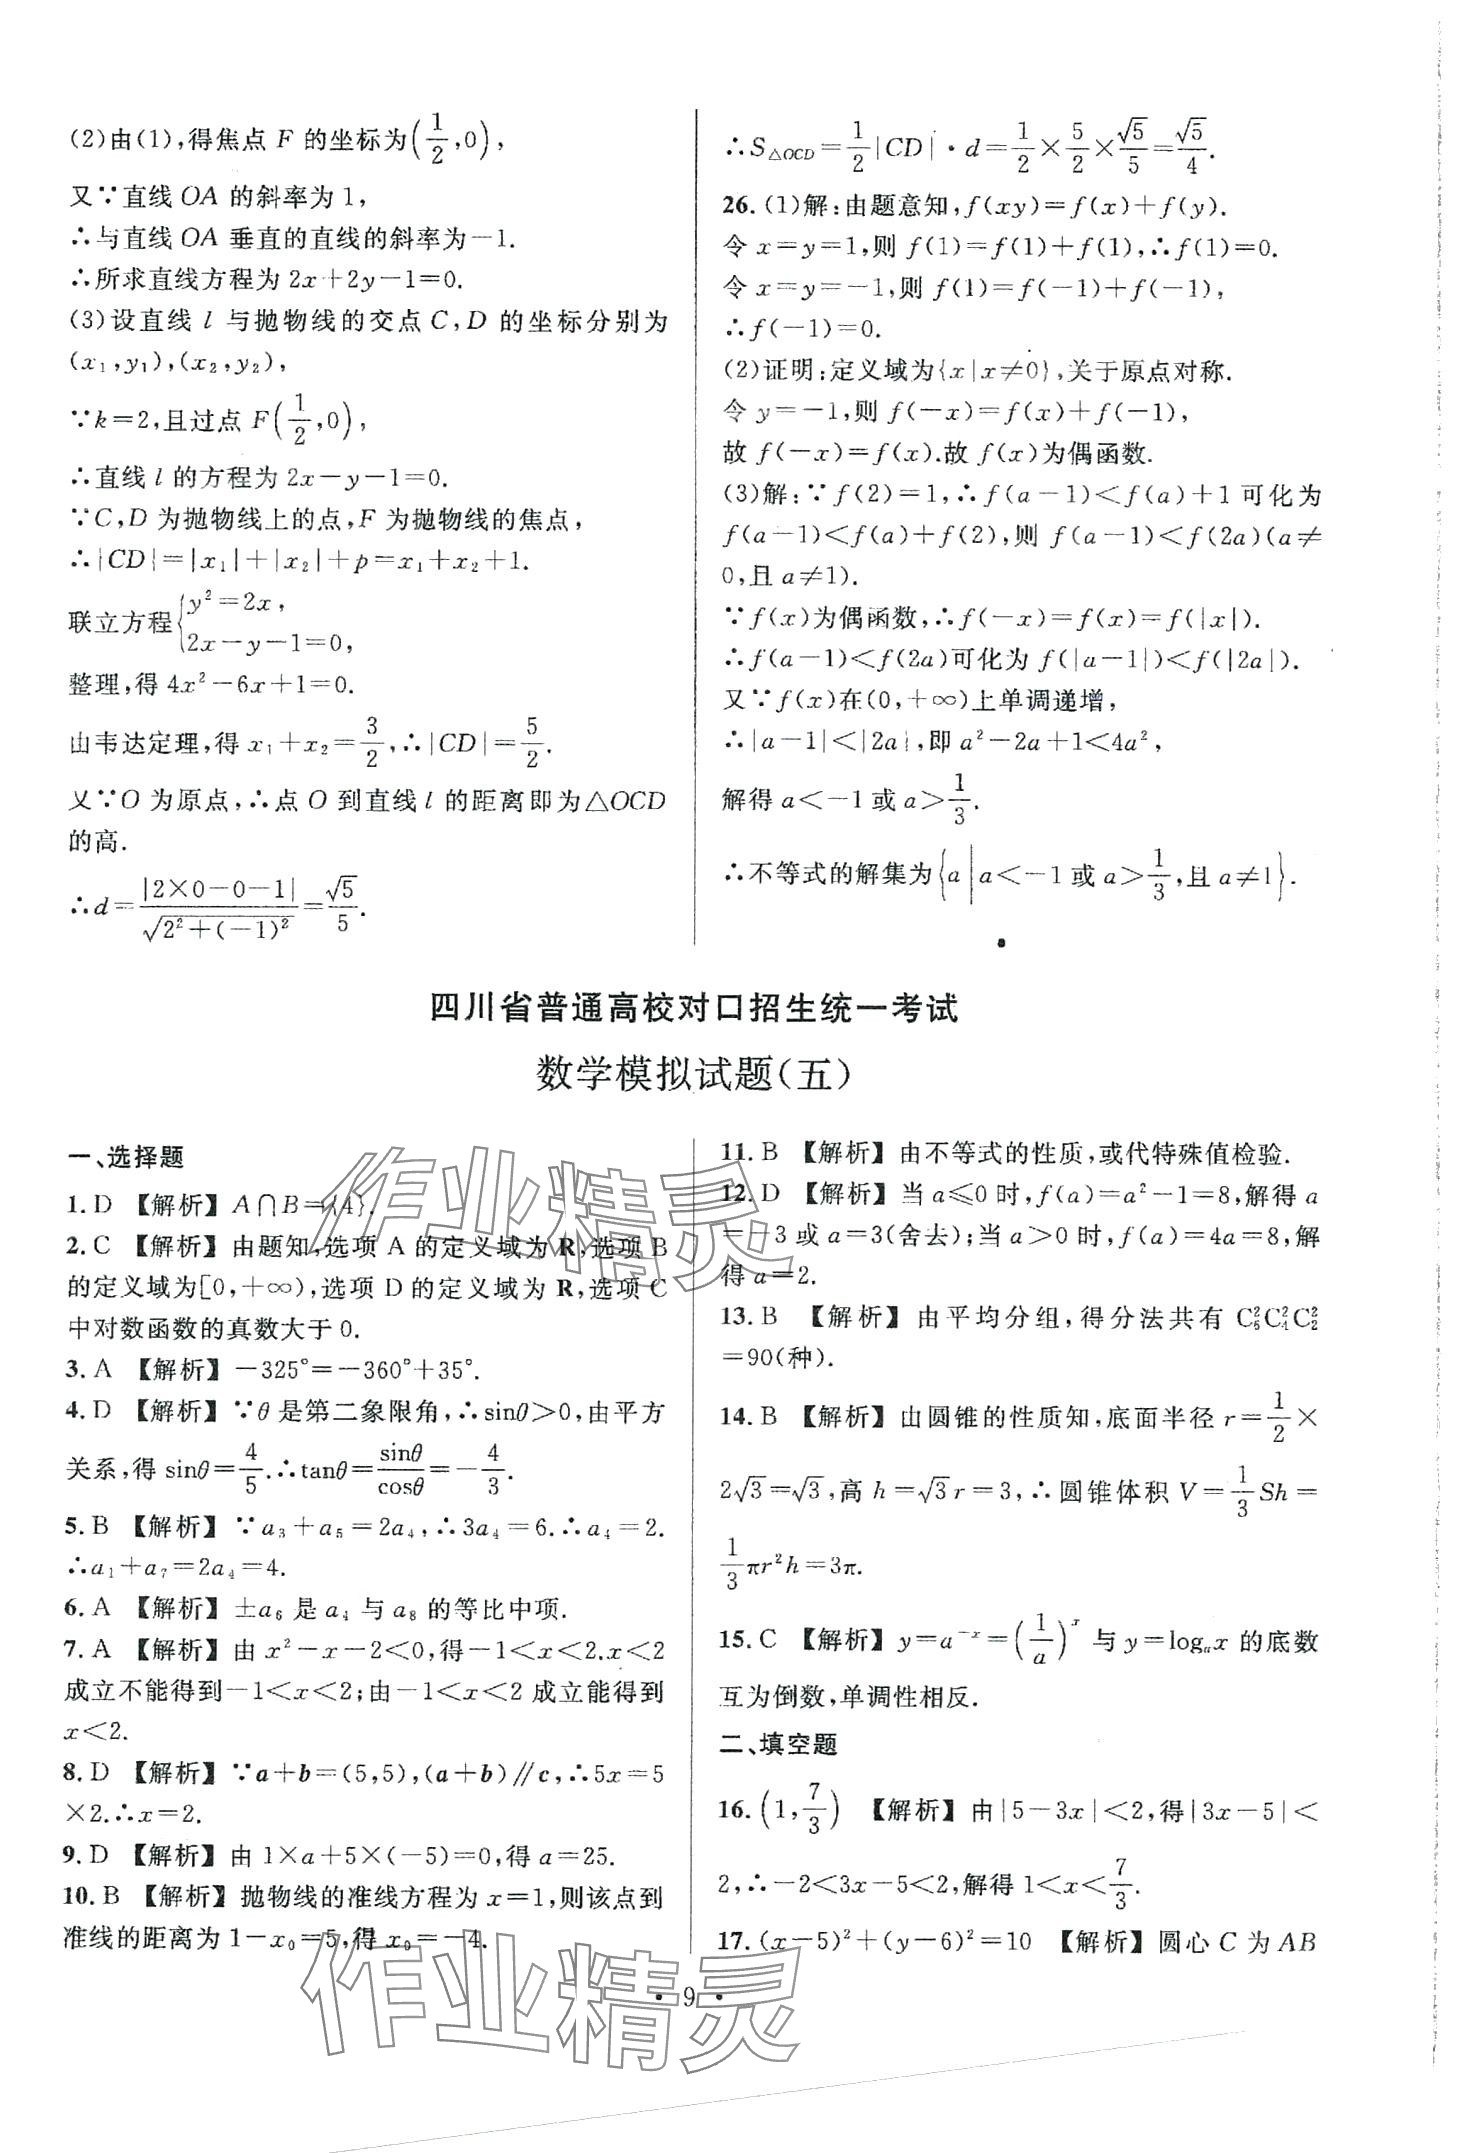 (2)由(1),得焦点 F 的坐标为(1/2,0),
又∵直线 OA 的斜率为 1,
∴与直线 OA 垂直的直线的斜率为-1.
∴所求直线方程为 2x+2y-1=0.
(3)设直线 l 与抛物线的交点 C,D 的坐标分别为
(x₁,y₁),(x₂,y₂),
∵k=2,且过点 F(1/2,0),
∴直线 l 的方程为 2x-y-1=0.
∵C,D 为抛物线上的点,F 为抛物线的焦点,
∴|CD|=|x₁|+|x₂|+p=x₁+x₂+1.
联立方程{y²=2x,
2x-y-1=0,
整理,得 4x²-6x+1=0.
由韦达定理,得 x₁+x₂=3/2,∴|CD|=5/2.
又∵O 为原点,∴点 O 到直线 l 的距离即为△OCD
的高.
∴d=|2×0-0-1|/√(2²+(-1)²)=√5/5.
∴S△OCD=1/2|CD|·d=1/2×5/2×√5/5=√5/4.
26.(1)解:由题意知,f(xy)=f(x)+f(y).
令 x=y=1,则 f(1)=f(1)+f(1),∴f(1)=0.
令 x=y=-1,则 f(1)=f(-1)+f(-1),
∴f(-1)=0.
(2)证明:定义域为{x|x≠0},关于原点对称.
令 y=-1,则 f(-x)=f(x)+f(-1),
故 f(-x)=f(x).故 f(x)为偶函数.
(3)解:∵f(2)=1,∴f(a-1)<f(a)+1 可化为
f(a-1)<f(a)+f(2),则 f(a-1)<f(2a)(a≠
0,且 a≠1).
∵f(x)为偶函数,∴f(-x)=f(x)=f(|x|).
∴f(a-1)<f(2a)可化为 f(|a-1|)<f(|2a|).
又∵f(x)在(0,+∞)上单调递增,
∴|a-1|<|2a|,即 a²-2a+1<4a²,
解得 a<-1 或 a>1/3.
∴不等式的解集为{a|a<-1 或 a>1/3,且 a≠1}.
四川省普通高校对口招生统一考试
数学模拟试题(五)
一、选择题
1. D 【解析】A∩B={4}.
2. C 【解析】由题知,选项 A 的定义域为 R,选项 B
的定义域为[0,+∞),选项 D 的定义域为 R,选项 C
中对数函数的真数大于 0.
3. A 【解析】-325°=-360°+35°.
4. D 【解析】∵θ 是第二象限角,∴sinθ>0,由平方
关系,得 sinθ=4/5.∴tanθ=sinθ/cosθ=-4/3.
5. B 【解析】∵a₃+a₅=2a₄,∴3a₄=6.∴a₄=2.
∴a₁+a₇=2a₄=4.
6. A 【解析】±a₆ 是 a₄ 与 a₈ 的等比中项.
7. A 【解析】由 x²-x-2<0,得-1<x<2.x<2
成立不能得到-1<x<2;由-1<x<2 成立能得到
x<2.
8. D 【解析】∵a+b=(5,5),(a+b)∥c,∴5x=5
×2.∴x=2.
9. D 【解析】由 1×a+5×(-5)=0,得 a=25.
10. B 【解析】抛物线的准线方程为 x=1,则该点到
准线的距离为 1-x₀=5,得 x₀=-4.
11. B 【解析】由不等式的性质,或代特殊值检验.
12. D 【解析】当 a≤0 时,f(a)=a²-1=8,解得 a
=-3 或 a=3(舍去);当 a>0 时,f(a)=4a=8,解
得 a=2.
13. B 【解析】由平均分组,得分法共有 C₆²C₄²C₂²
=90(种).
14. B 【解析】由圆锥的性质知,底面半径 r=1/2×
2√3=√3,高 h=√3r=3,∴圆锥体积 V=1/3Sh=
1/3πr²h=3π.
15. C 【解析】y=a⁻ˣ=(1/a)ˣ 与 y=logₐx 的底数
互为倒数,单调性相反.
二、填空题
16.(1,7/3) 【解析】由|5-3x|<2,得|3x-5|<
2,∴-2<3x-5<2,解得 1<x<7/3.
17.(x-5)²+(y-6)²=10 【解析】圆心 C 为 AB
· 9 ·
作业精灵
作业精灵